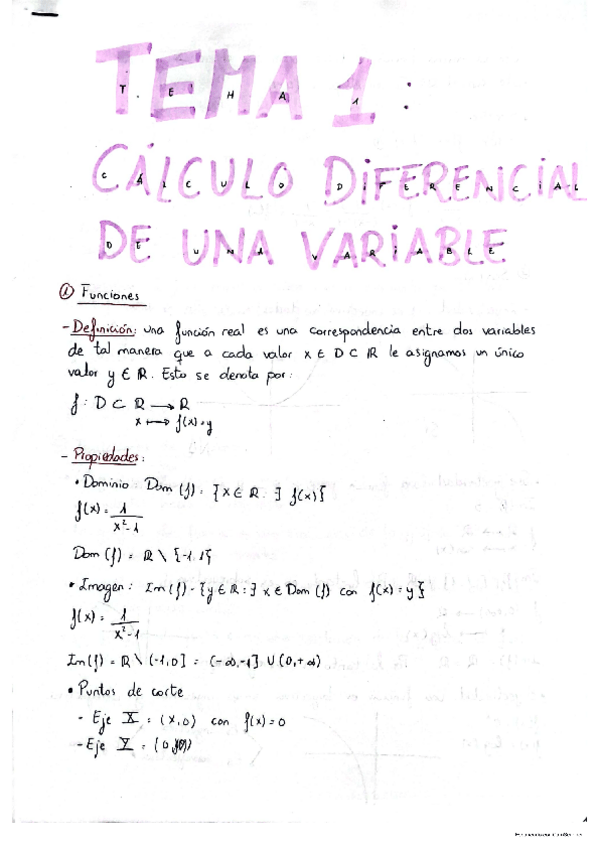 TEMA 1:
CÁLCULO DIFERENCIAL
DE UNA VARIABLE
① Funciones
- Definición: una función real es una correspondencia entre dos variables
de tal manera que a cada valor x ∈ D ⊂ ℝ le asignamos un único
valor y ∈ ℝ. Esto se denota por:
f: D ⊂ ℝ → ℝ
x ↦ f(x)=y
- Propiedades:
• Dominio Dom (f) = {x ∈ ℝ : ∃ f(x)}
f(x) = 1/(x²-1)
Dom (f) = ℝ \ {-1, 1}
• Imagen: Im (f) = {y ∈ ℝ : ∃ x ∈ Dom (f) con f(x) = y}
f(x) = 1/(x²-1)
Im(f) = ℝ \ (-1,0] = (-∞,-1] ∪ (0,+∞)
• Puntos de corte
- Eje X = (x,0) con f(x)=0
- Eje Y = (0, f(0))